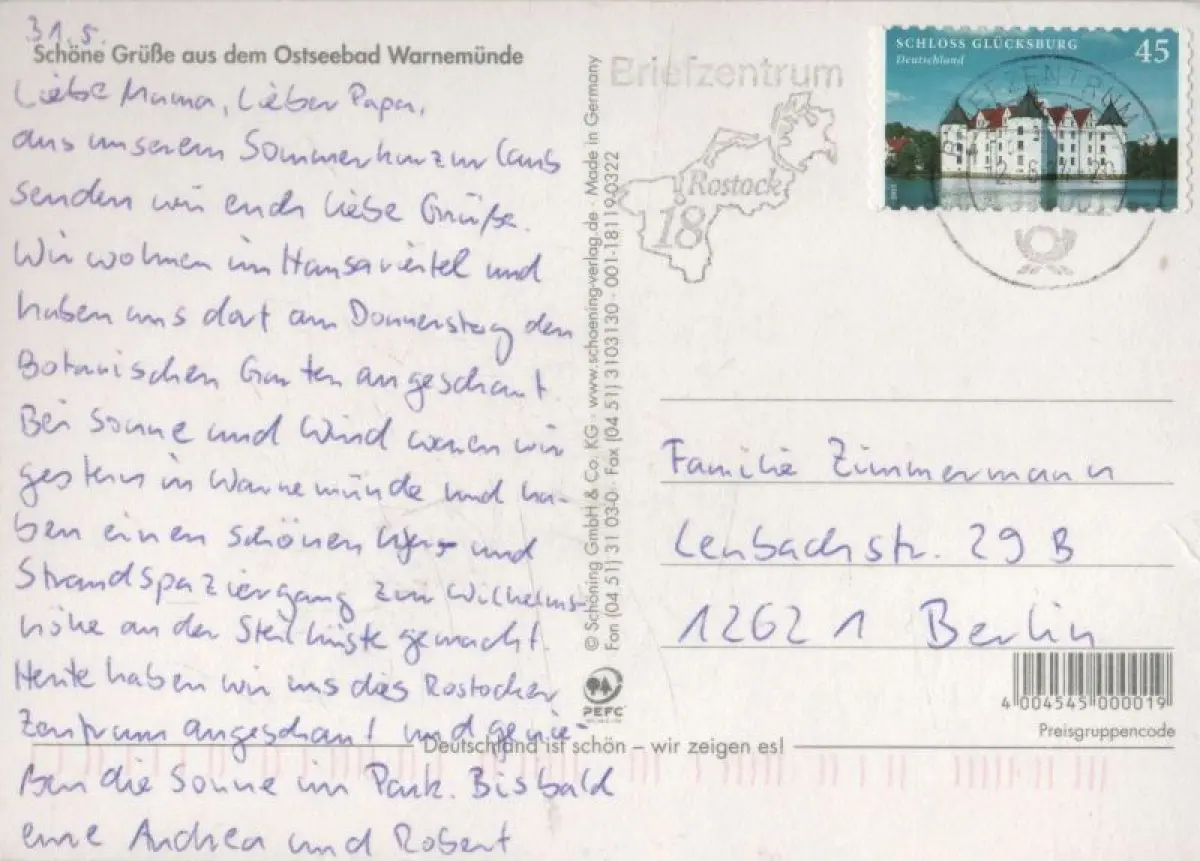 31.5.
Schöne Grüße aus dem Ostseebad Warnemünde
Liebe Mama, Lieber Papa,
aus unserem Sommerkurzurlaub
senden wir euch liebe Grüße.
Wir wohnen im Hansaviertel und
haben uns dort am Donnerstag den
Botanischen Garten angeschaut.
Bei Sonne und Wind waren wir
gestern in Warnemünde und ha-
ben einen schönen und
Strandspaziergang zur Wilhelms-
höhe an der Steilküste gemacht.
Heute haben wir uns das Rostocker
Zentrum angeschaut und genie-
ßen die Sonne im Park. Bis bald
eure Andrea und Robert
Deutschland ist schön – wir zeigen es!
© Schöning GmbH & Co. KG · www.schoening-verlag.de · Made in Germany
Fon (04 51) 31 03-0 · Fax (04 51) 3103130 · 001-18119-0322
PEFC
Briefzentrum
Rostock
18
SCHLOSS GLÜCKSBURG
Deutschland
45
BRIEFZENTRUM
Familie Zimmermann
Lenbachstr. 29 B
12621 Berlin
4 004545 000019
Preisgruppencode